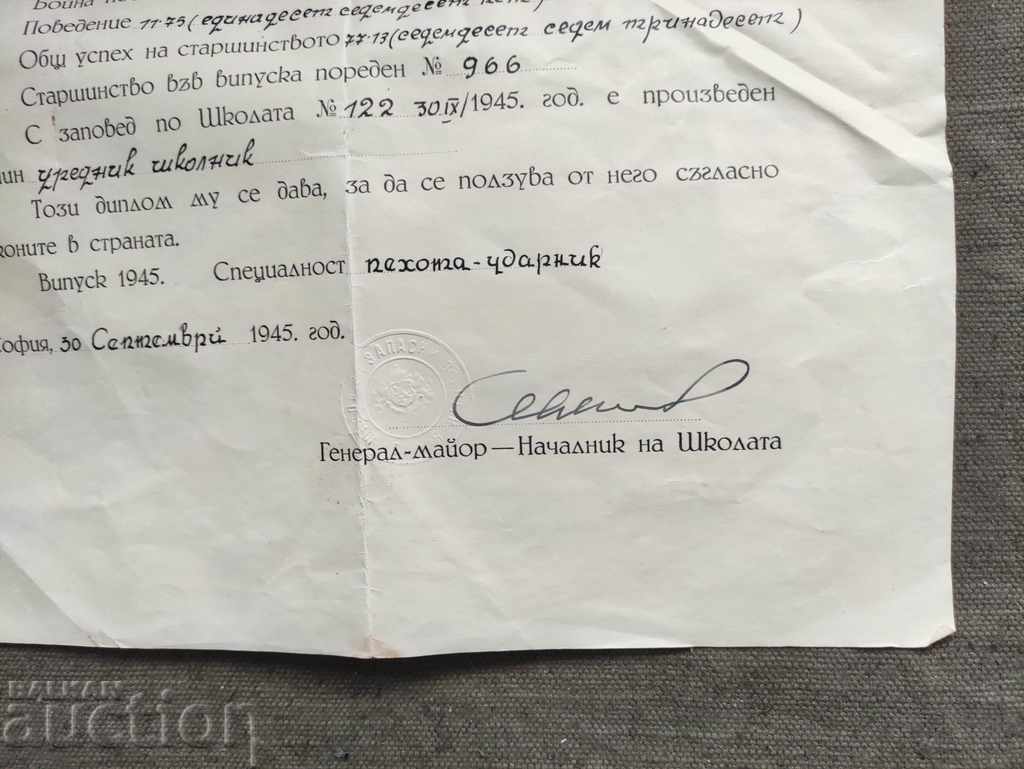 Война
Поведение 11·75 (единадесет седемдесет пет)
Общ успех на старшинството 77·13 (седемдесет седем тринадесет)
Старшинство взв випуска пореден № 966
С заповед по Школата № 122 30 IX/1945. год. е произведен
чин уредник школник
Този диплом му се дава, за да се ползува от него сзгласно
коните в страната.
Випуск 1945. Специалност пехота-ударник
София, 30 Септемврй 1945. год.
ЗАПАС
Генерал-майор — Началник на Школата
BALKAN
auction